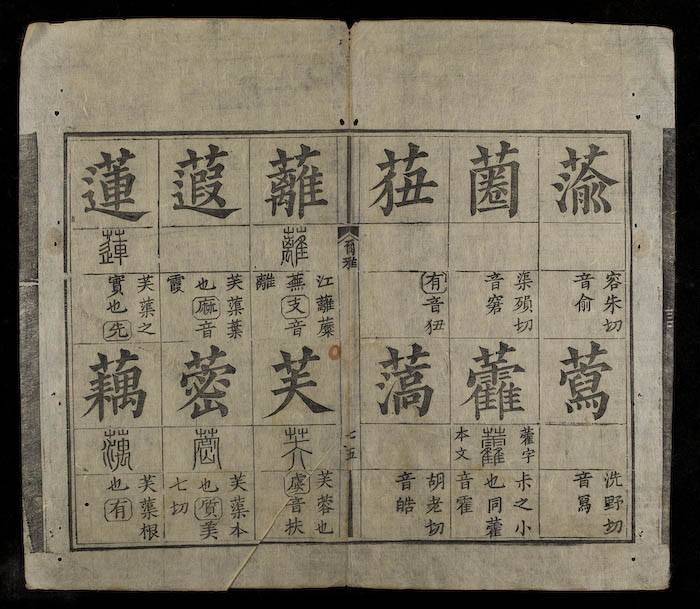 蕍
容朱切
音俞
菌
渠殞切
音窘
莥
有音狃
蕮
洗野切
音寫
藿字
本文
尗之小
也同藿
音霍
薃
胡老切
音皓
爾雅
七五
蘺
蘺
江蘺蘪
蕪支音
離
蕸
芙蕖葉
也麻音
霞
蓮
蓮
芙蕖之
實也先
芙
芙
芙蓉也
虞音扶
蔤
蔤
芙蕖本
也質美
七切
藕
芙蕖根
也有